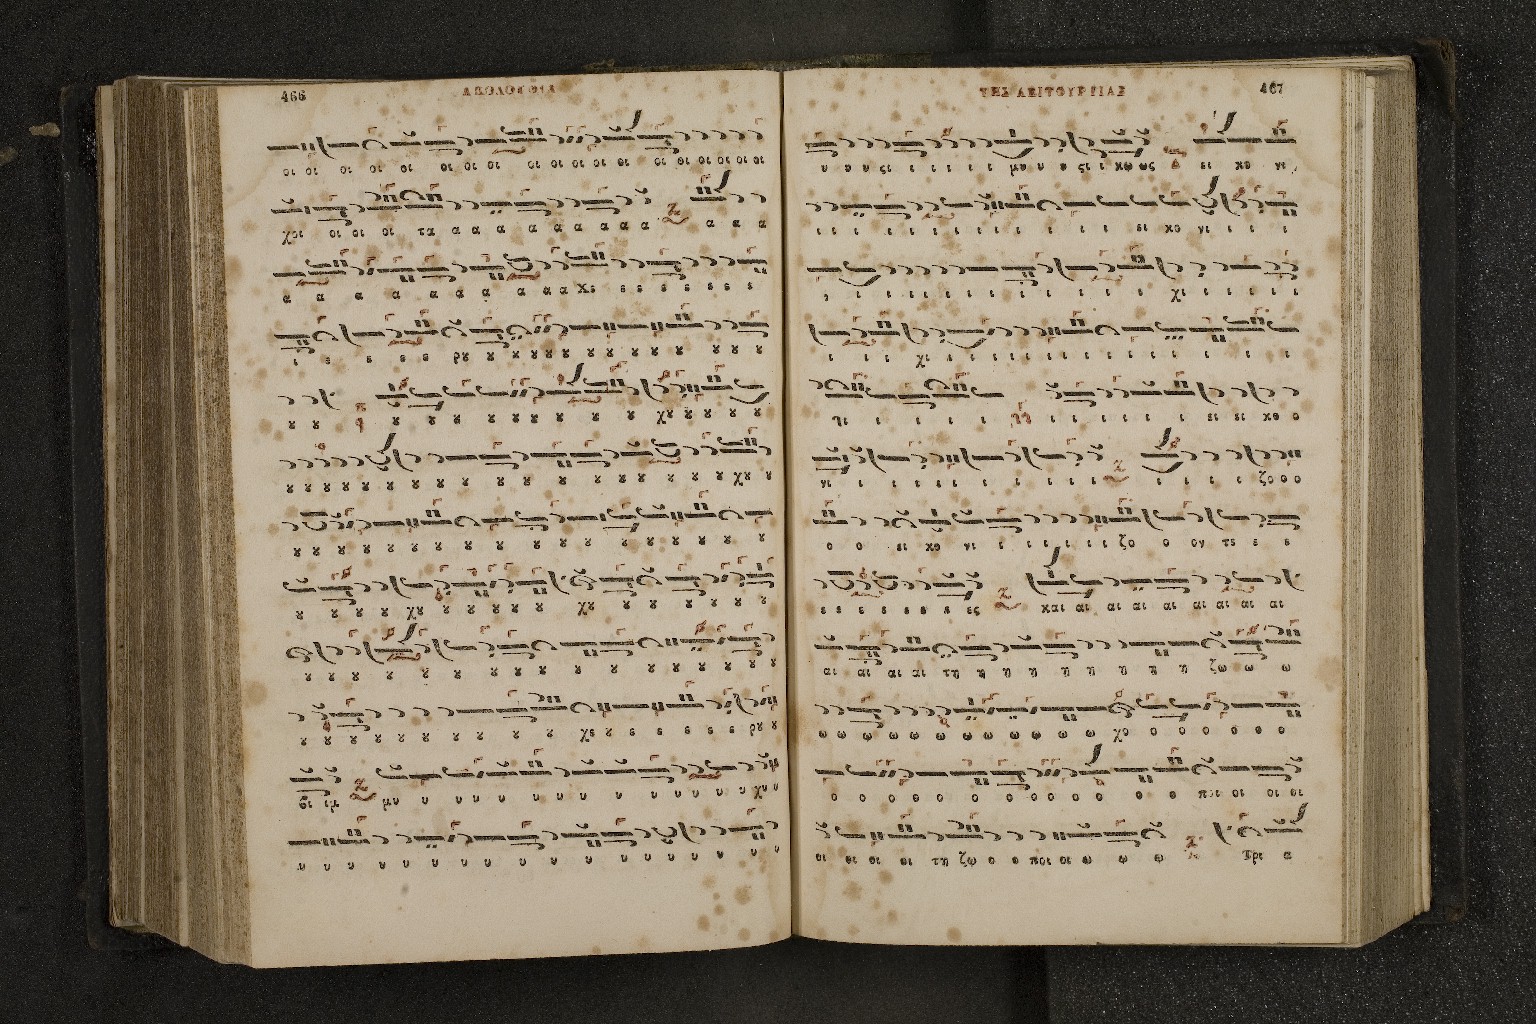 466
ΑΚΟΛΟΥΘΙΑ
οι οι οι οι οι οι οι οι οι οι οι οι οι οι οι οι οι οι οι
χοι οι οι οι τα α α α α α α α α α α α α
α α α α α α α α α α Χε ε ε ε ε ε ε ε
ε ε ε ε ε ρȣ ȣ ȣ ȣ ȣ ȣ ȣ ȣ ȣ ȣ ȣ ȣ ȣ
ȣ ȣ ȣ ȣ ȣ ȣ ȣ ȣ ȣ ȣ ȣ χȣ ȣ ȣ ȣ ȣ
ȣ ȣ ȣ ȣ ȣ ȣ ȣ ȣ ȣ ȣ ȣ ȣ ȣ ȣ ȣ ȣ ȣ χȣ ȣ
ȣ ȣ ȣ ȣ ȣ ȣ ȣ ȣ ȣ ȣ ȣ ȣ ȣ ȣ ȣ ȣ ȣ
ȣ ȣ ȣ χȣ ȣ ȣ ȣ ȣ ȣ χȣ ȣ ȣ ȣ ȣ ȣ
ȣ ȣ ȣ ȣ ȣ ȣ ȣ ȣ ȣ ȣ ȣ ȣ ȣ ȣ ȣ ȣ
ȣ ȣ ȣ ȣ ȣ ȣ ȣ ȣ ȣ χε ε ε ε ε ε ε ρȣ ȣ
οι ιμ μυ υ υ υ υ υ υ υ υ υ υ υ υ χυ υ
υ υ υ υ υ υ υ υ υ υ υ υ υ υ υ υ υ
467
ΤΗΣ ΛΕΙΤΟΥΡΓΙΑΣ
υ υ υ ςι ι ι ι ι ι μυ υ υ ςι ι κω ως ει κο νι
ι ι ι ι ι ι ι ι ι ι ι ι ι ει κο νι ι ι ι
ι ι ι ι ι ι ι ι ι ι ι ι ι χι ι ι ι ι
ι ι ι χι ι ι ι ι ι ι ι ι ι ι ι ι ι ι
γι ι ι ι ι ι ι ι ι ι ει ει κο ο
νι ι ι ι ι ι ι ι ι ι ι ι ι ι ι ζο ο ο
ο ο ει κο νι ι ι ι ι ι ι ζο ο ον τε ε ε
ε ε ε ε ε ε ε ες και αι αι αι αι αι αι αι αι
αι αι αι αι τη η η η η η η η ζω ω ω
ω ω ω ω ω ω ω ω ω ω ω ω χο ο ο ο ο ο ο
ο ο ο ο ο ο ο ο ο ο ο ο ο ποι οι οι οι
οι οι οι οι τη ζω ο ο ποι οι ω ω ω Τρι α